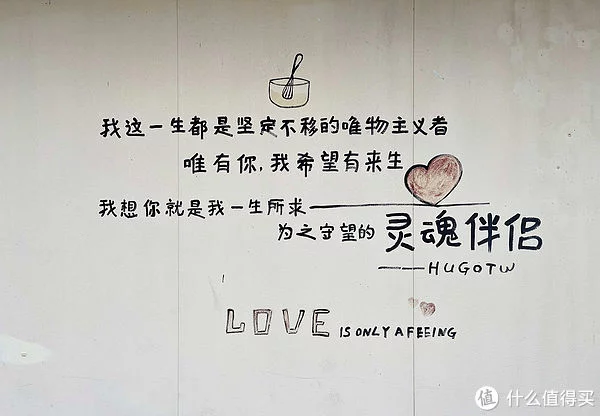 我这一生都是坚定不移的唯物主义者
唯有你,我希望有来生
我想你就是我一生所求
为之守望的 灵魂伴侣
——HUGOTW
LOVE IS ONLY A FEEING
值 什么值得买